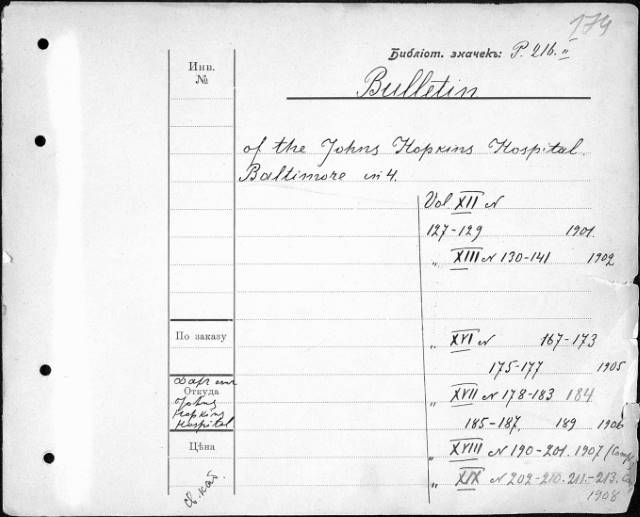 174
Библіот. значекъ: P. 216. II
Инв.
№
Bulletin
of the Johns Hopkins Hospital.
Baltimore in 4.
Vol. XII N
127-129 1901.
„ XIII N 130-141 1902
По заказу
„ XVI N 167-173
175-177 1905
Откуда
Johns
Hopkins
Hospital
„ XVII N 178-183 184
185-187, 189 1906
Цѣна
„ XVIII N 190-201. 1907
„ XIX N 202-210. 211-213.
1908